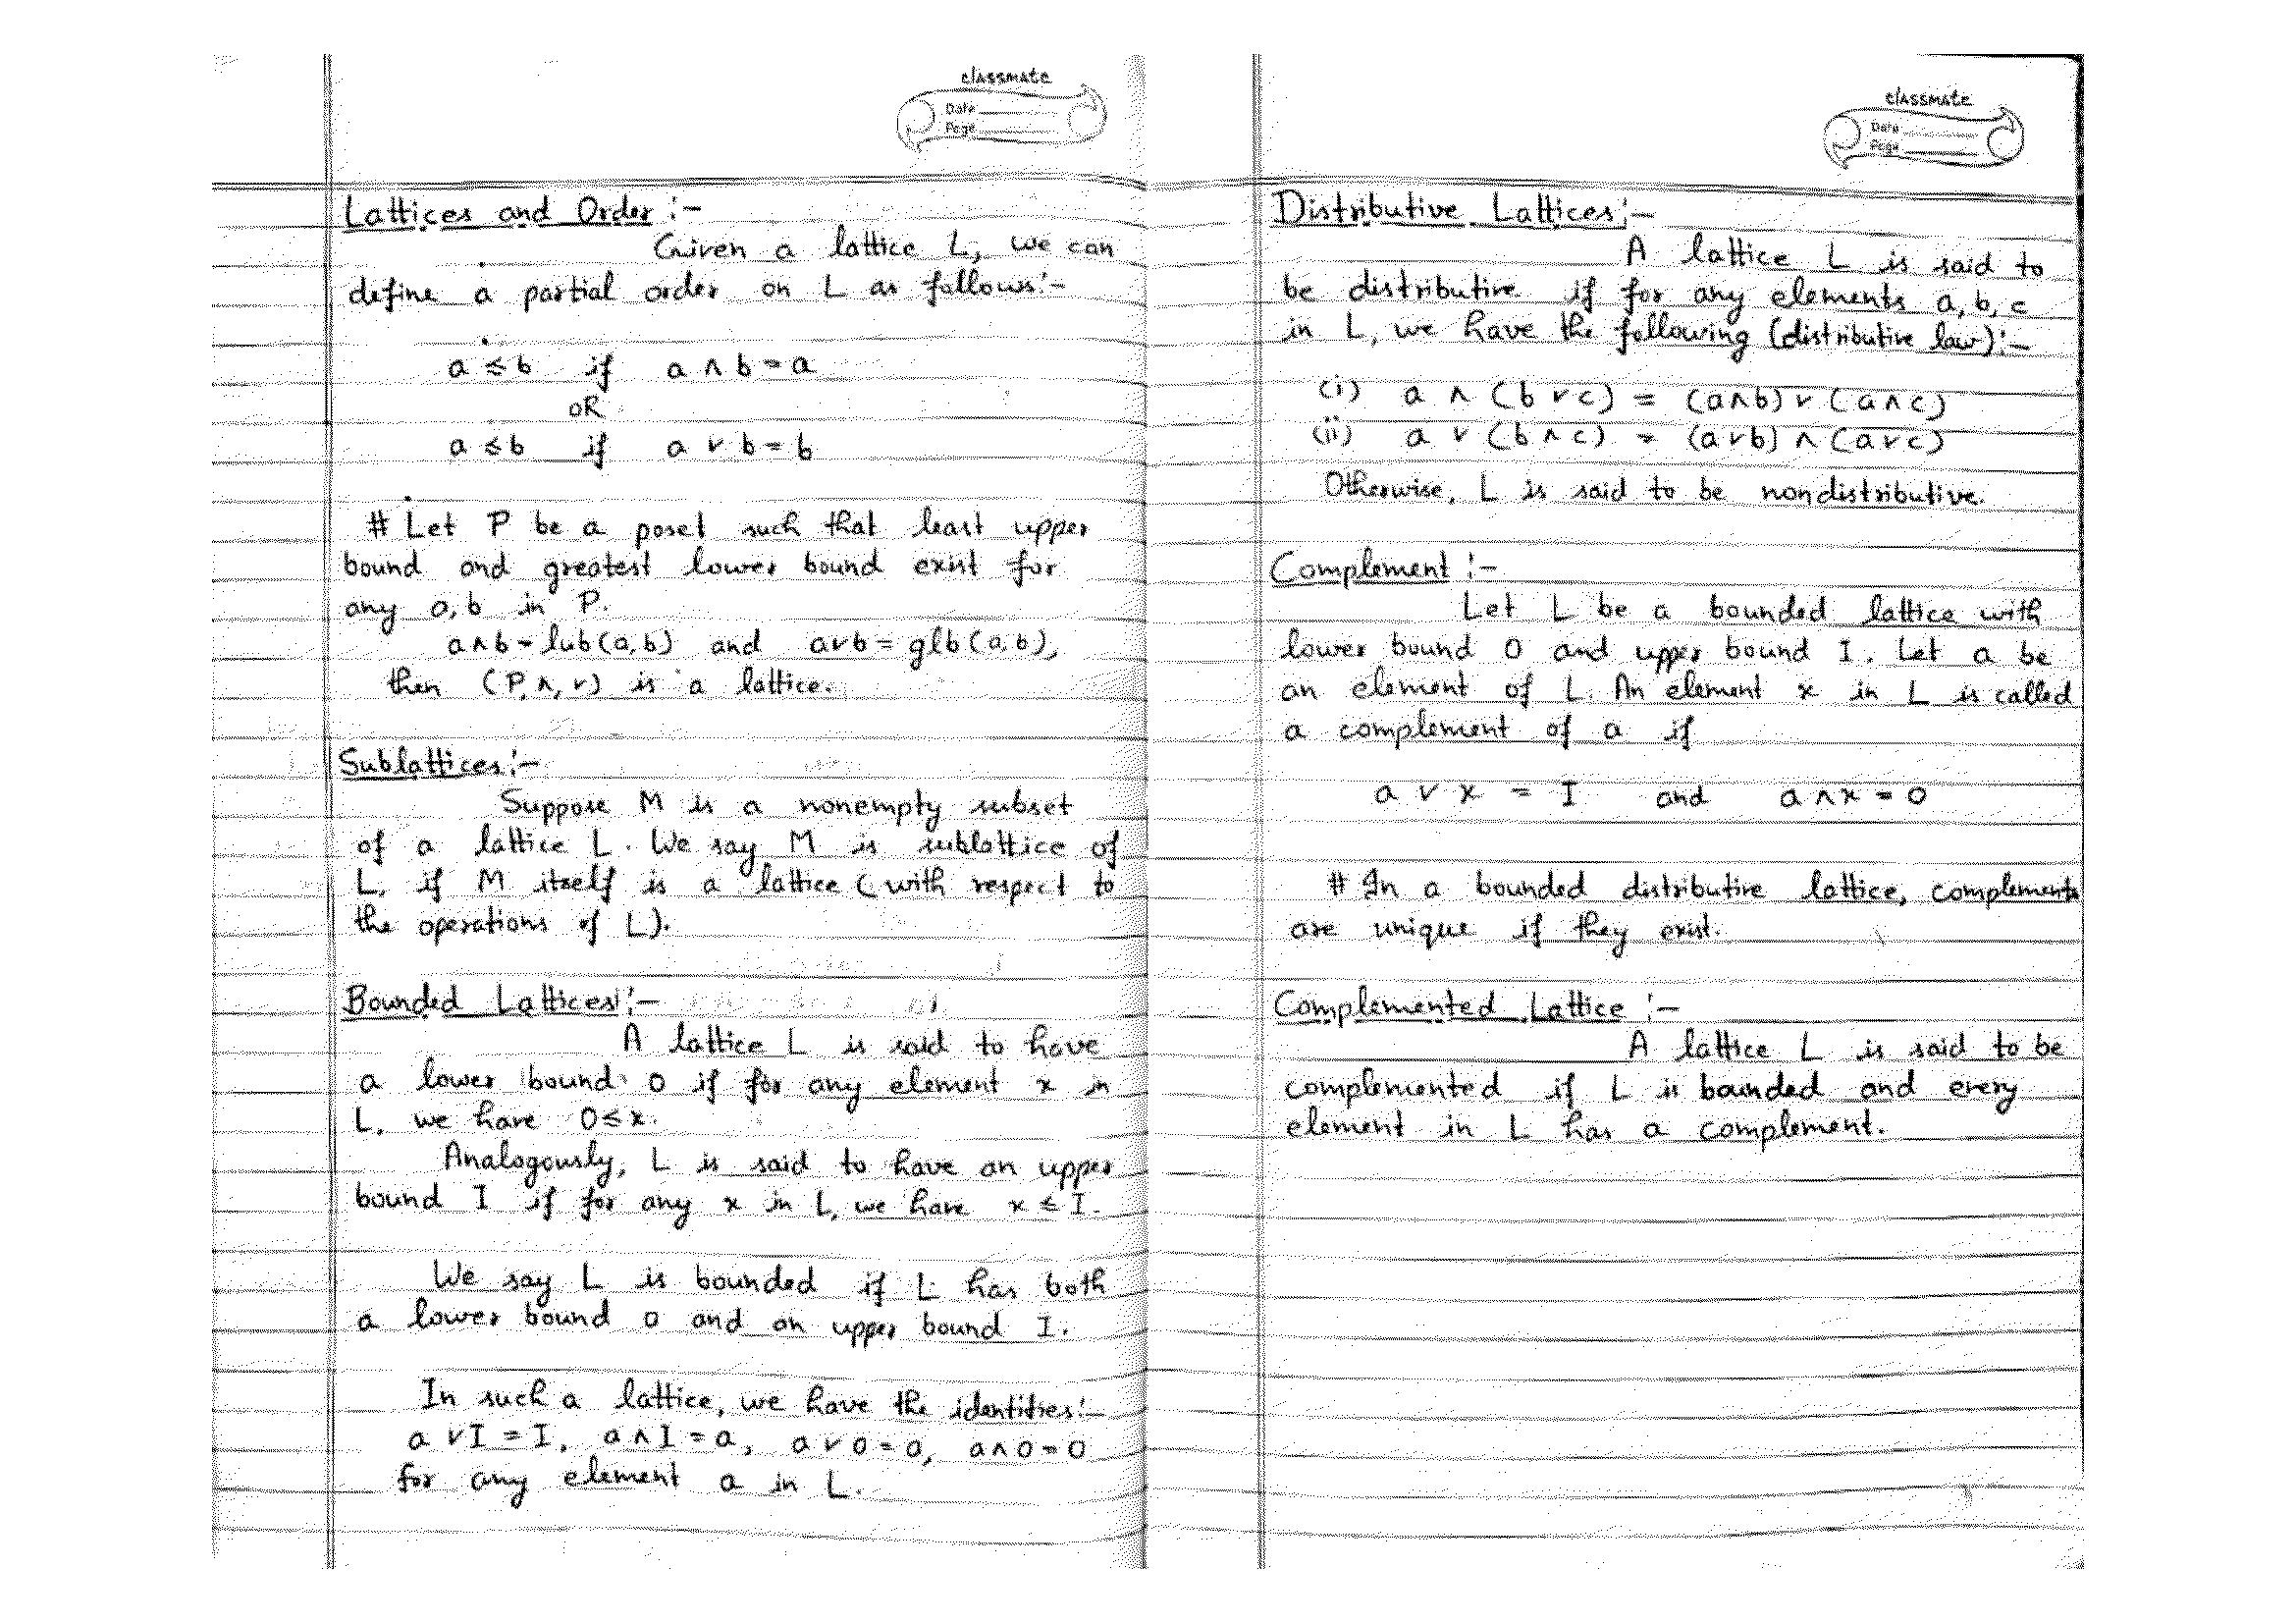 classmate
Date
Page
Lattices and Order :-
Given a lattice L, we can
define a partial order on L as follows:-
a ≤ b if a ∧ b = a
OR
a ≤ b if a ∨ b = b
# Let P be a poset such that least upper
bound and greatest lower bound exist for
any a, b in P.
a∧b = lub(a,b) and a∨b = glb(a,b),
then (P, ∧, ∨) is a lattice.
Sublattices:-
Suppose M is a nonempty subset
of a lattice L. We say M is sublattice of
L, if M itself is a lattice (with respect to
the operations of L).
Bounded Lattices:-
A lattice L is said to have
a lower bound 0 if for any element x in
L, we have 0 ≤ x.
Analogously, L is said to have an upper
bound I if for any x in L, we have x ≤ I.
We say L is bounded if L has both
a lower bound 0 and an upper bound I.
In such a lattice, we have the identities:-
a ∨ I = I, a ∧ I = a, a ∨ 0 = a, a ∧ 0 = 0
for any element a in L.
classmate
Date
Page
Distributive Lattices:-
A lattice L is said to
be distributive if for any elements a, b, c
in L, we have the following (distributive law):-
(i) a ∧ (b ∨ c) = (a∧b) ∨ (a∧c)
(ii) a ∨ (b ∧ c) = (a∨b) ∧ (a∨c)
Otherwise, L is said to be nondistributive.
Complement :-
Let L be a bounded lattice with
lower bound 0 and upper bound I. Let a be
an element of L. An element x in L is called
a complement of a if
a ∨ x = I and a ∧ x = 0
# In a bounded distributive lattice, complements
are unique if they exist.
Complemented Lattice :-
A lattice L is said to be
complemented if L is bounded and every
element in L has a complement.